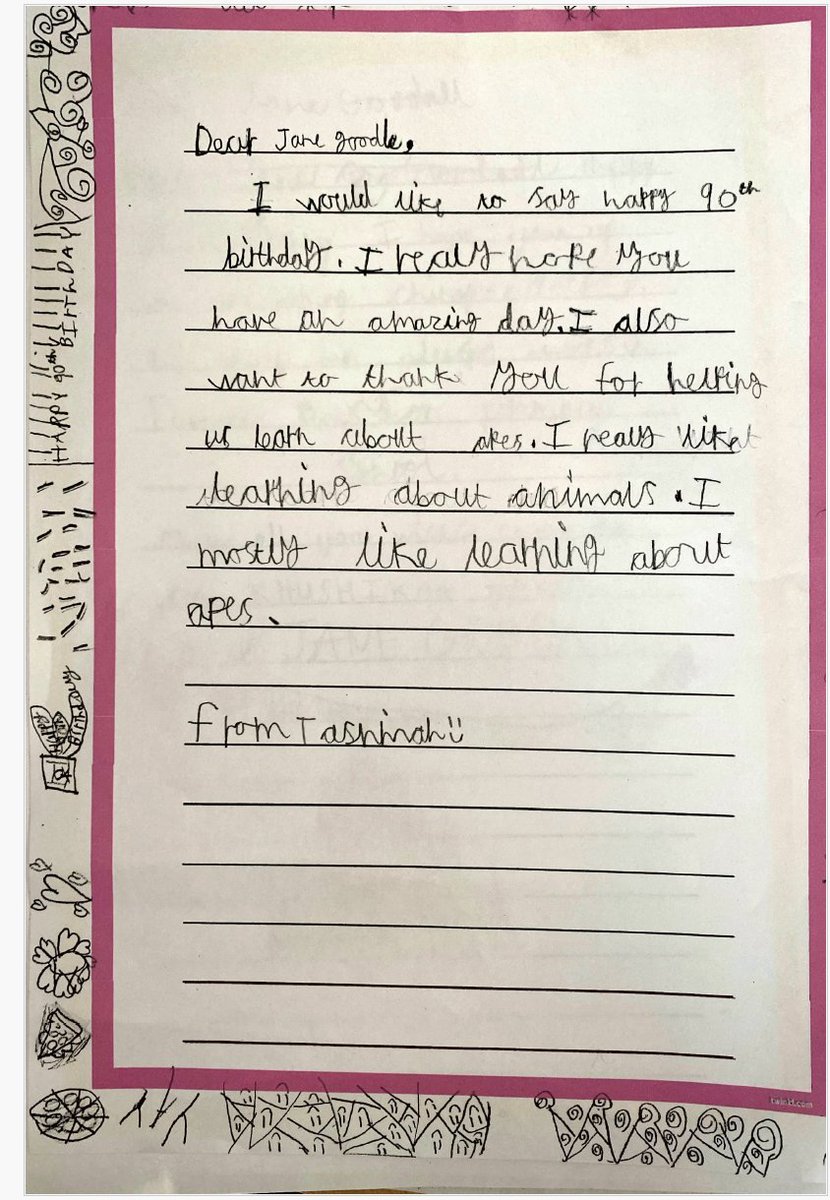 Dear Jane goodle,
I would like to say happy 90th
birthday. I really hope you
have an amazing day. I also
want to thank you for helping
us learn about apes. I really like
learning about animals. I
mostly like learning about
apes.
from Tasnimah
HAPPY 90th BIRTHDAY
HAPPY BIRTHDAY
twinkl.com